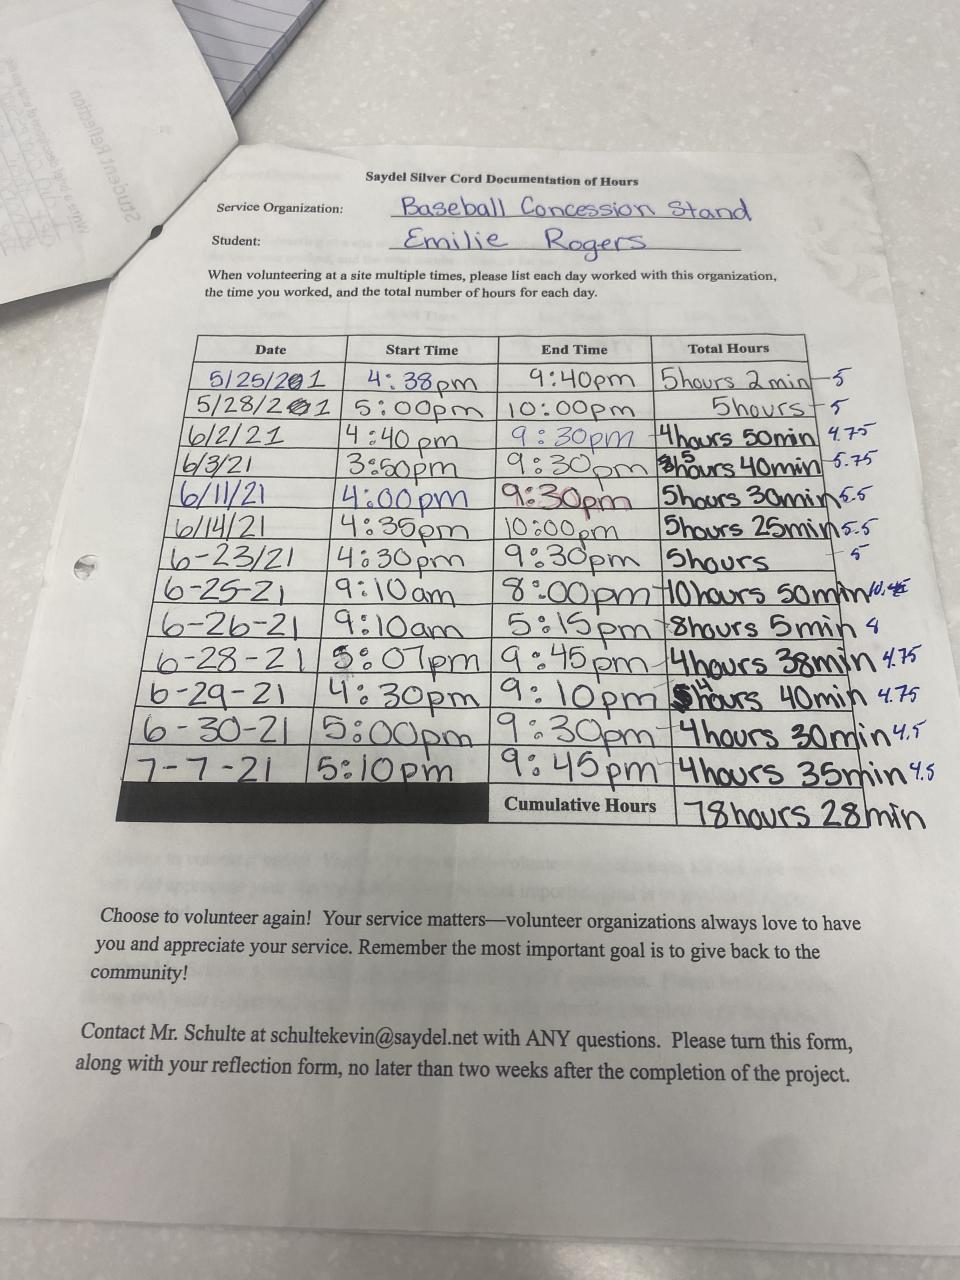 Student Reflection
Saydel Silver Cord Documentation of Hours
Service Organization: Baseball Concession Stand
Student: Emilie Rogers
When volunteering at a site multiple times, please list each day worked with this organization,
the time you worked, and the total number of hours for each day.
Date Start Time End Time Total Hours
5/25/21 4:38pm 9:40pm 5hours 2min 5
5/28/21 5:00pm 10:00pm 5hours 5
6/2/21 4:40pm 9:30pm 4hours 50min 4.75
6/3/21 3:50pm 9:30pm 5hours 40min 5.75
6/11/21 4:00pm 9:30pm 5hours 30min 5.5
6/14/21 4:35pm 10:00pm 5hours 25min 5.5
6-23/21 4:30pm 9:30pm 5hours 5
6-25-21 9:10am 8:00pm 10hours 50min
6-26-21 9:10am 5:15pm 8hours 5min 8
6-28-21 5:07pm 9:45pm 4hours 38min 4.75
6-29-21 4:30pm 9:10pm 4hours 40min 4.75
6-30-21 5:00pm 9:30pm 4hours 30min 4.5
7-7-21 5:10pm 9:45pm 4hours 35min 4.5
Cumulative Hours 78hours 28min
Choose to volunteer again! Your service matters—volunteer organizations always love to have
you and appreciate your service. Remember the most important goal is to give back to the
community!
Contact Mr. Schulte at schultekevin@saydel.net with ANY questions. Please turn this form,
along with your reflection form, no later than two weeks after the completion of the project.